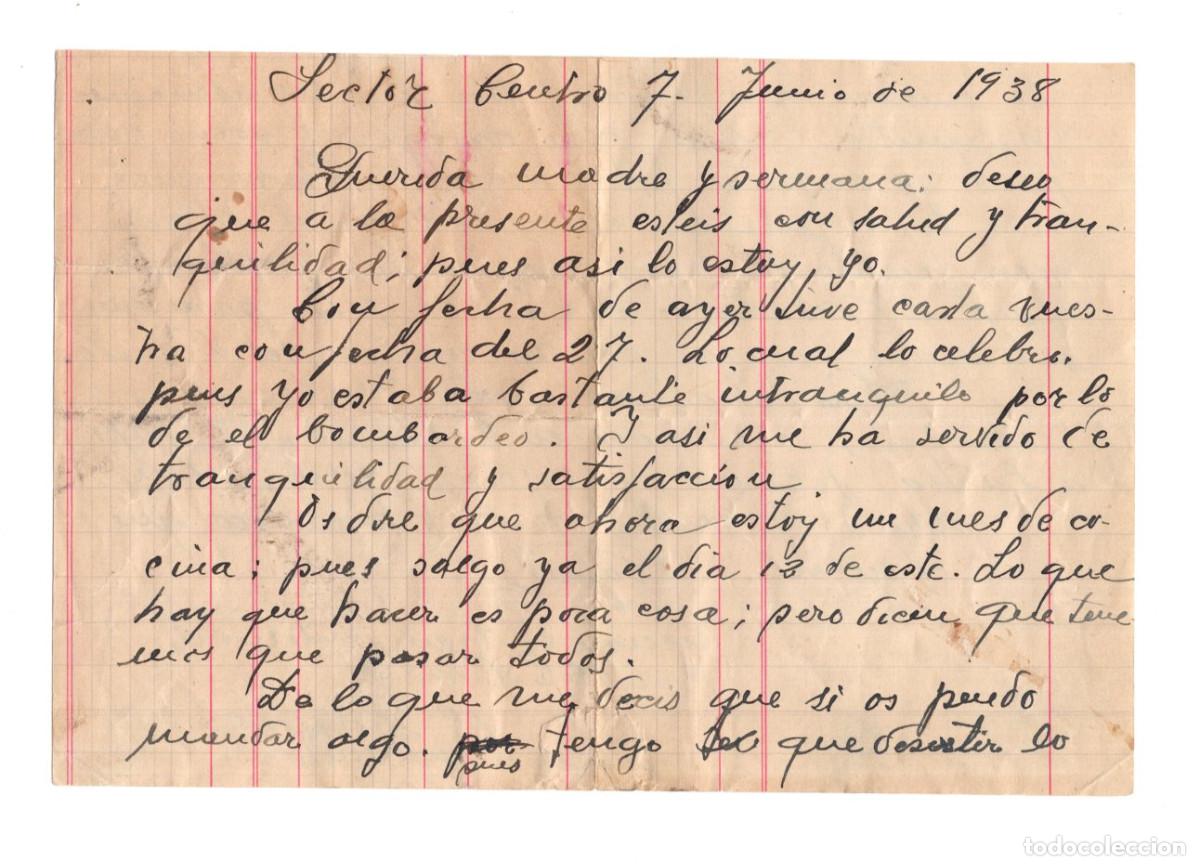 Sector Centro 7. Junio de 1938
Querida madre y sermana: deseo
que a la presente esteis con salud y tran-
quilidad; pues asi lo estoy, yo.
Con fecha de ayer tuve carta vues-
tra con fecha del 27. Lo cual lo celebro.
pues yo estaba bastante intranquilo por lo
de el bombardeo. Y asi me ha servido de
tranquilidad y satisfaccion
Os dire que ahora estoy un mes de co-
cina; pues salgo ya el dia 13 de este. Lo que
hay que hacer es poca cosa; pero dicen que tene
mos que pasar todos.
De lo que me decis que si os puedo
mandar algo. pues tengo que desistir lo
todocoleccion